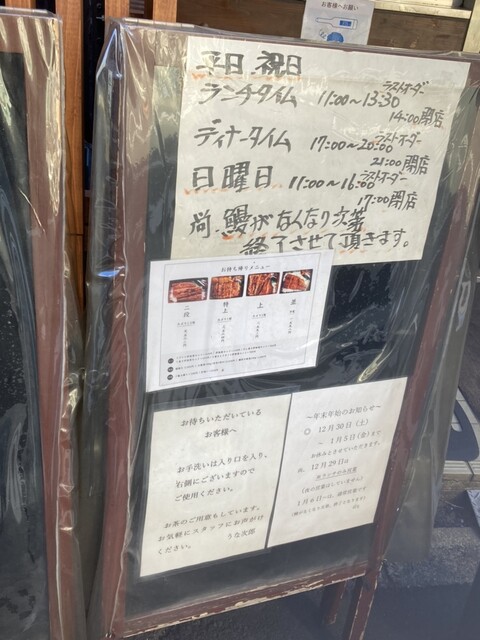 お客様へお願い
平日 祝日
ランチタイム 11:00〜13:30 ラストオーダー
14:00閉店
ディナータイム 17:00〜20:00 ラストオーダー
21:00閉店
日曜日 11:00〜16:00 ラストオーダー
17:00閉店
尚、鰻がなくなり次第
終了させて頂きます。
お持ち帰りメニュー
二段
特上
上
並
お待ちいただいている
お客様へ
お手洗いは入り口を入り、
右側にございますので
ご使用ください。
お茶のご用意もしています。
お気軽にスタッフにお声がけ
ください。
うな次郎
〜年末年始のお知らせ〜
◎ 12月30日(土)
〜 1月5日(金)まで
お休みとさせていただきます。
尚、12月29日は
ランチのみ営業
(夜の営業はしていません)
1月6日〜は、通常営業です